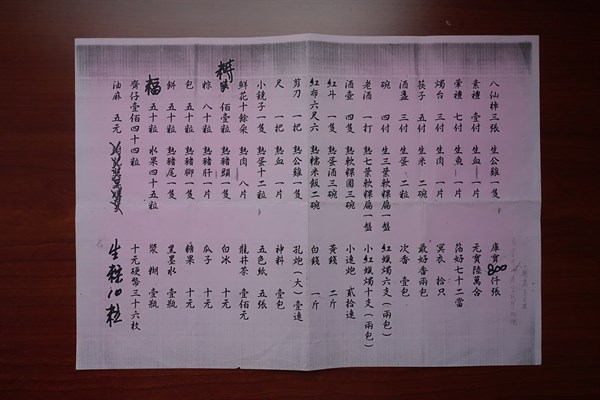 八仙棹三張 生公雞一隻 庫寶800仟張
素禮 壹付 生血一片 元寶陸萬含
葷禮 七付 生魚一片 七十二當
燭台 三付 生肉一片 冥衣 拾只
筷子 五付 生米 二碗 最好香兩包
酒盞 三付 生蛋 二粒 次香 壹包
碗 四付 生三葉軟粿扁一盤 紅蠟燭六支(兩包)
老酒 一打 熟七葉軟粿扁一盤 小紅蠟燭十支(兩包)
酒壺 四隻 熟軟粿圓三碗 小連炮 貳拾連
紅斗 一隻 熟蛋酒三碗 黃錢 二斤
紅布六尺六 熟糯米飯二碗 白錢 一斤
剪刀 一把 熟公雞一隻 孔炮(大)壹連
尺 一把 熟血一片 神料 壹包
小鏡子一隻 熟蛋十二粒 五色紙 五張
鮮花十餘朵 熟肉一八片 龍井茶 壹佰元
佰壹粒 熟豬頭一隻 白冰 十元
粽 八十粒 熟豬肝一片 瓜子 十元
包 五十粒 熟豬腳一隻 糖果 十元
餅 五十粒 熟豬尾一隻 黑墨水 壹瓶
福 五十粒 水果四十五粒 漿糊 壹瓶
齋仔壹佰四十四粒 十元硬幣三十六枚
油麻 五元 生粿10粒